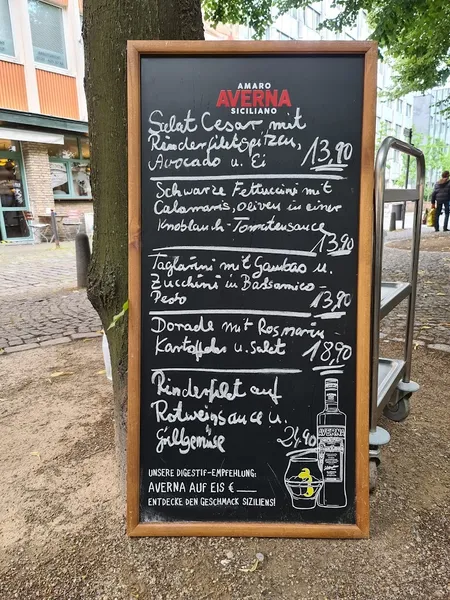 AMARO
AVERNA
SICILIANO
Salat Cesar mit
Rinderfiletspitzen,
Avocado u. Ei 13,90
Schwarze Fettuccini mit
Calamaris, Oliven in einer
Knoblauch-Tomatensauce
13,90
Taglarini mit Gambas u.
Zucchini in Balsamico-
Pesto 13,90
Dorade mit Rosmarin
Kartoffeln u. Salat 18,90
Rinderfilet auf
Rotweinsauce u.
Grillgemüse 24,90
AVERNA
UNSERE DIGESTIF-EMPFEHLUNG:
AVERNA AUF EIS € ____
ENTDECKE DEN GESCHMACK SIZILIENS!